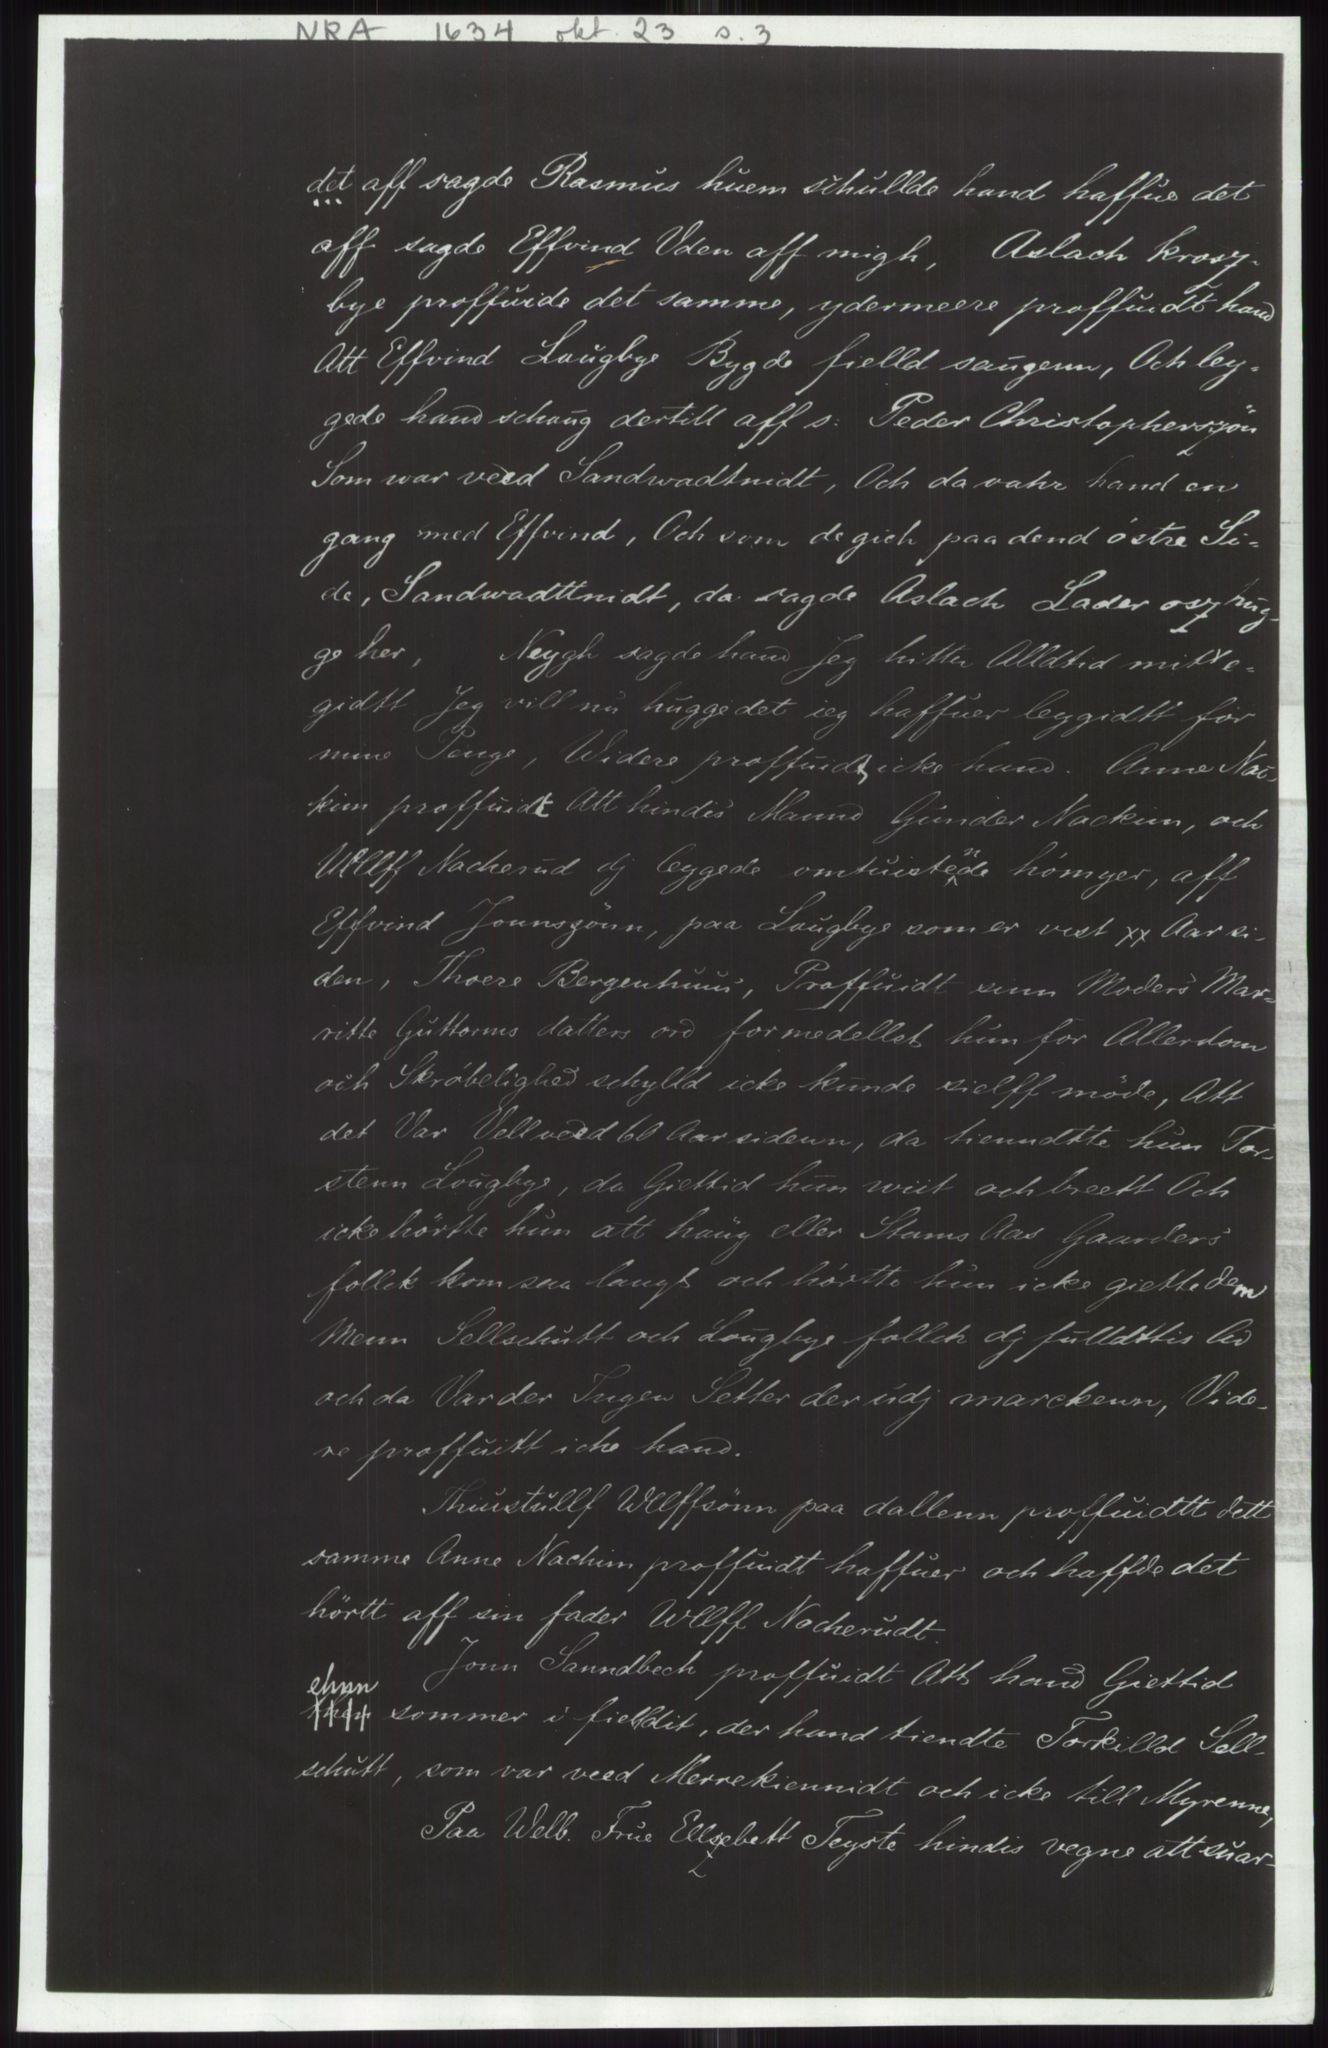 NRA 1634 okt. 23 s. 3
det aff sagde Rasmus huem schullde hand haffue det
aff sagde Effvind Uden aff migh, Aslach krosz-
bye proffuide det samme, ydermeere proffuidt hand
Att Effvind Laugbye Bygde fielld saugenn, Och ley-
gede hand schoug dertill aff s: Peder Christopherszön
Som war veed Sandwadtnidt, Och da vahr hand en
gang med Effvind, Och som de gich paa dend östre Si-
de, Sandwadttnidt, da sagde Aslach Lader osz hug-
ge her, Neygh sagde hand Jeg hitter Alldtid mitt e-
gidtt Jeg vill nu hugge det ieg haffuer leygidtt for
mine Penge, Widere proffuidt icke hand. Anne Nac-
kim proffuidt Att hindis Mannd Gunder Nackim, och
Wllff Nacherud dj leygede omtuistende hömyer, aff
Effvind Jounszönn, paa Laugbye som er vest xx Aar si-
den, Thoere Bergenhuus, Proffuidt sinn Moders Mar-
ritte Guttorms datters ord formedellst hun for Allerdom
och Skröbelighed schylld icke kunde sielff möde, Att
det Var Vell veed 60 Aar sidenn, da tienndtte hun Tor-
stenn Lougbye, da Giettid hun wiit och breett Och
icke hörtte hun att haug eller Stams Aas Gaarders
follck kom saa langt och hörtte hun icke giette dem
Menn Sellschutt och Lougbye follch dj fulldttis Ad
och da Var der Ingen Setter der udj marckenn, Vide-
re proffuitt iche hand.
Thiustullf Wllffsönn paa dallenn proffuidtt dett
samme Anne Nachim proffuidt haffuer och haffde det
hörtt aff sin fader Wllff Nacherudt.
Jonn Sanndbech proffuidt Att hand Giettid
ehnn
sommer i fielldit, der hand tiendte Torkilld Sell-
schutt, som var veed Merrekiennidt och icke till Myrenne,
Paa Welb. Frue Ellszebett Teyste hindis vegne att suar-